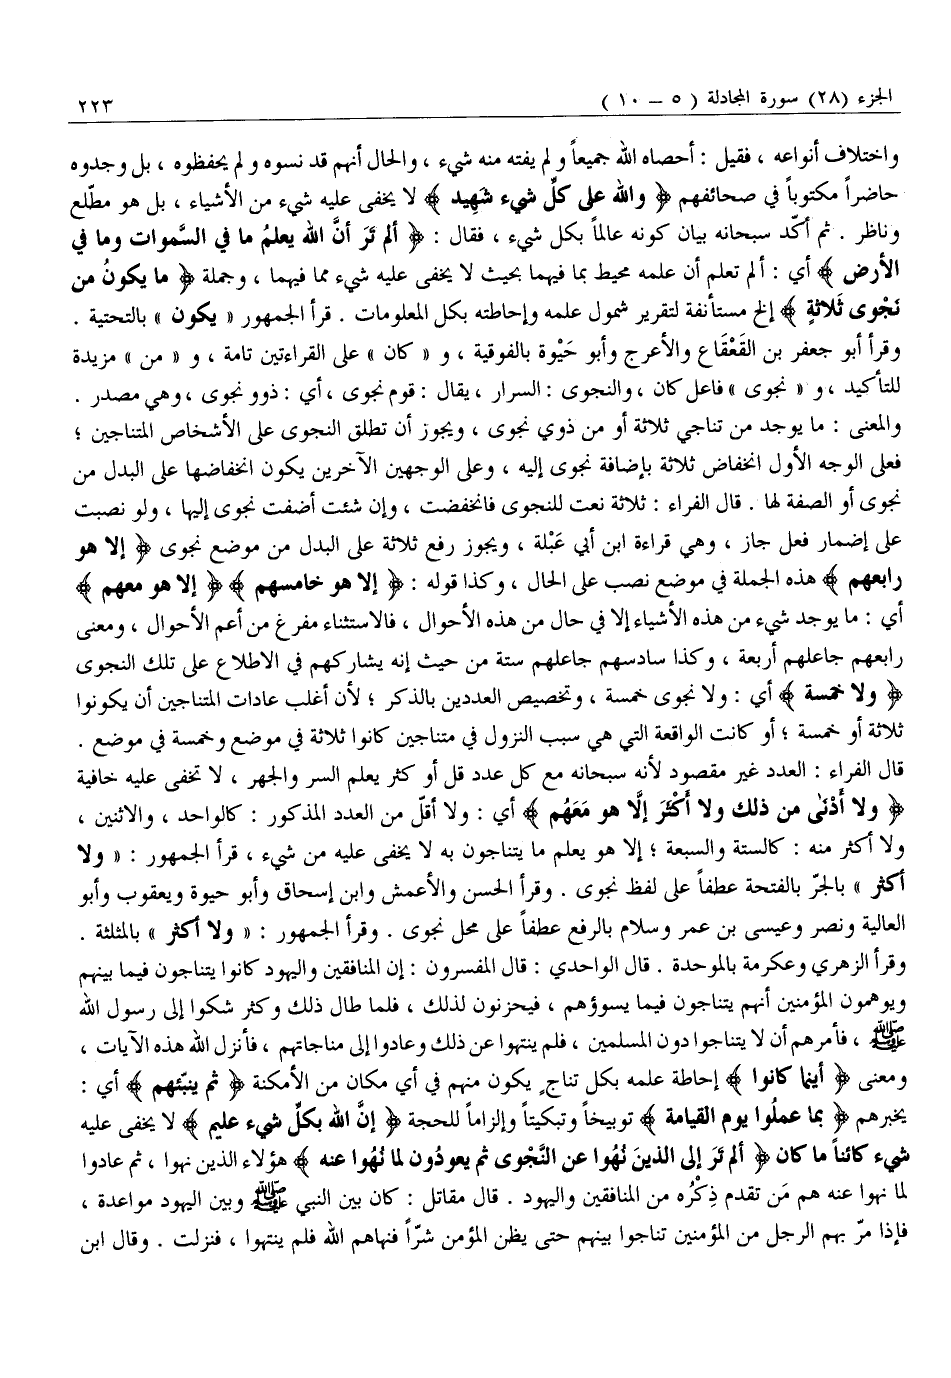 الجزء (٢٨) سورة المجادلة ( ٥ – ١٠ ) ٢٢٣
واختلاف أنواعه ، فقيل : أحصاه الله جميعاً ولم يفته منه شيء ، والحال أنهم قد نسوه ولم يحفظوه ، بل وجدوه
حاضراً مكتوباً في صحائفهم ﴿ والله على كلِّ شيء شَهِيد ﴾ لا يخفى عليه شيء من الأشياء ، بل هو مطّلع
وناظر . ثم أكّد سبحانه بيان كونه عالماً بكل شيء ، فقال : ﴿ ألم تَرَ أنَّ الله يعلمُ ما في السَّموات وما في
الأرض ﴾ أي : ألم تعلم أن علمه محيط بما فيهما بحيث لا يخفى عليه شيء مما فيهما ، وجملة ﴿ ما يكونُ من
نَجْوى ثَلاثةٍ ﴾ إلخ مستأنفة لتقرير شمول علمه وإحاطته بكل المعلومات . قرأ الجمهور « يكون » بالتحتية .
وقرأ أبو جعفر بن القَعْقَاع والأعرج وأبو حَيْوة بالفوقية ، و « كان » على القراءتين تامة ، و « من » مزيدة
للتأكيد ، و « نجوى » فاعل كان ، والنجوى : السرار ، يقال : قوم نجوى ، أي : ذوو نجوى ، وهي مصدر .
والمعنى : ما يوجد من تناجي ثلاثة أو من ذوي نجوى ، ويجوز أن تطلق النجوى على الأشخاص المتناجين ؛
فعلى الوجه الأول انخفاض ثلاثة بإضافة نجوى إليه ، وعلى الوجهين الآخرين يكون انخفاضها على البدل من
نجوى أو الصفة لها . قال الفراء : ثلاثة نعت للنجوى فانخفضت ، وإن شئت أضفت نجوى إليها ، ولو نصبت
على إضمار فعل جاز ، وهي قراءة ابن أبي عَبْلة ، ويجوز رفع ثلاثة على البدل من موضع نجوى ﴿ إلا هو
رابعهم ﴾ هذه الجملة في موضع نصب على الحال ، وكذا قوله : ﴿ إلا هو خامسهم ﴾ ﴿ إلا هو معهم ﴾
أي : ما يوجد شيء من هذه الأشياء إلا في حال من هذه الأحوال ، فالاستثناء مفرغ من أعم الأحوال ، ومعنى
رابعهم جاعلهم أربعة ، وكذا سادسهم جاعلهم ستة من حيث إنه يشاركهم في الاطلاع على تلك النجوى
﴿ ولا خمسة ﴾ أي : ولا نجوى خمسة ، وتخصيص العددين بالذكر ؛ لأن أغلب عادات المتناجين أن يكونوا
ثلاثة أو خمسة ؛ أو كانت الواقعة التي هي سبب النزول في متناجين كانوا ثلاثة في موضع وخمسة في موضع .
قال الفراء : العدد غير مقصود لأنه سبحانه مع كل عدد قل أو كثر يعلم السر والجهر ، لا تخفى عليه خافية
﴿ ولا أَدْنَى من ذلك ولا أَكْثَرَ إلَّا هو مَعَهُم ﴾ أي : ولا أقلّ من العدد المذكور : كالواحد ، والاثنين ،
ولا أكثر منه : كالستة والسبعة ؛ إلا هو يعلم ما يتناجون به لا يخفى عليه من شيء ، قرأ الجمهور : « ولا
أكثر » بالجرّ بالفتحة عطفاً على لفظ نجوى . وقرأ الحسن والأعمش وابن إسحاق وأبو حيوة ويعقوب وأبو
العالية ونصر وعيسى بن عمر وسلام بالرفع عطفاً على محل نجوى . وقرأ الجمهور : « ولا أكثر » بالمثلثة .
وقرأ الزهري وعكرمة بالموحدة . قال الواحدي : قال المفسرون : إن المنافقين واليهود كانوا يتناجون فيما بينهم
ويوهمون المؤمنين أنهم يتناجون فيما يسوؤهم ، فيحزنون لذلك ، فلما طال ذلك وكثر شكوا إلى رسول الله
ﷺ ، فأمرهم أن لا يتناجوا دون المسلمين ، فلم ينتهوا عن ذلك وعادوا إلى مناجاتهم ، فأنزل الله هذه الآيات ،
ومعنى ﴿ أينما كانوا ﴾ إحاطة علمه بكل تناجٍ يكون منهم في أي مكان من الأمكنة ﴿ ثم ينبّئهم ﴾ أي :
يخبرهم ﴿ بما عملُوا يوم القيامة ﴾ توبيخاً وتبكيتاً وإلزاماً للحجة ﴿ إنَّ الله بكلِّ شيء عليم ﴾ لا يخفى عليه
شيء كائناً ما كان ﴿ ألم تَرَ إلى الذينَ نُهُوا عن النَّجْوى ثم يعودُون لما نُهُوا عنه ﴾ هؤلاء الذين نهوا ، ثم عادوا
لما نهوا عنه هم مَن تقدم ذِكْرُه من المنافقين واليهود . قال مقاتل : كان بين النبي ﷺ وبين اليهود مواعدة ،
فإذا مرّ بهم الرجل من المؤمنين تناجوا بينهم حتى يظن المؤمن شرّاً فنهاهم الله فلم ينتهوا ، فنزلت . وقال ابن